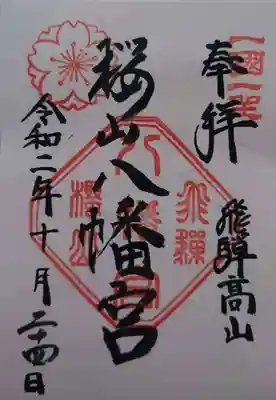 一國一社
奉拝
飛騨高山
桜山八幡宮
八幡宮
飛騨
櫻山
令和二年十月二十四日